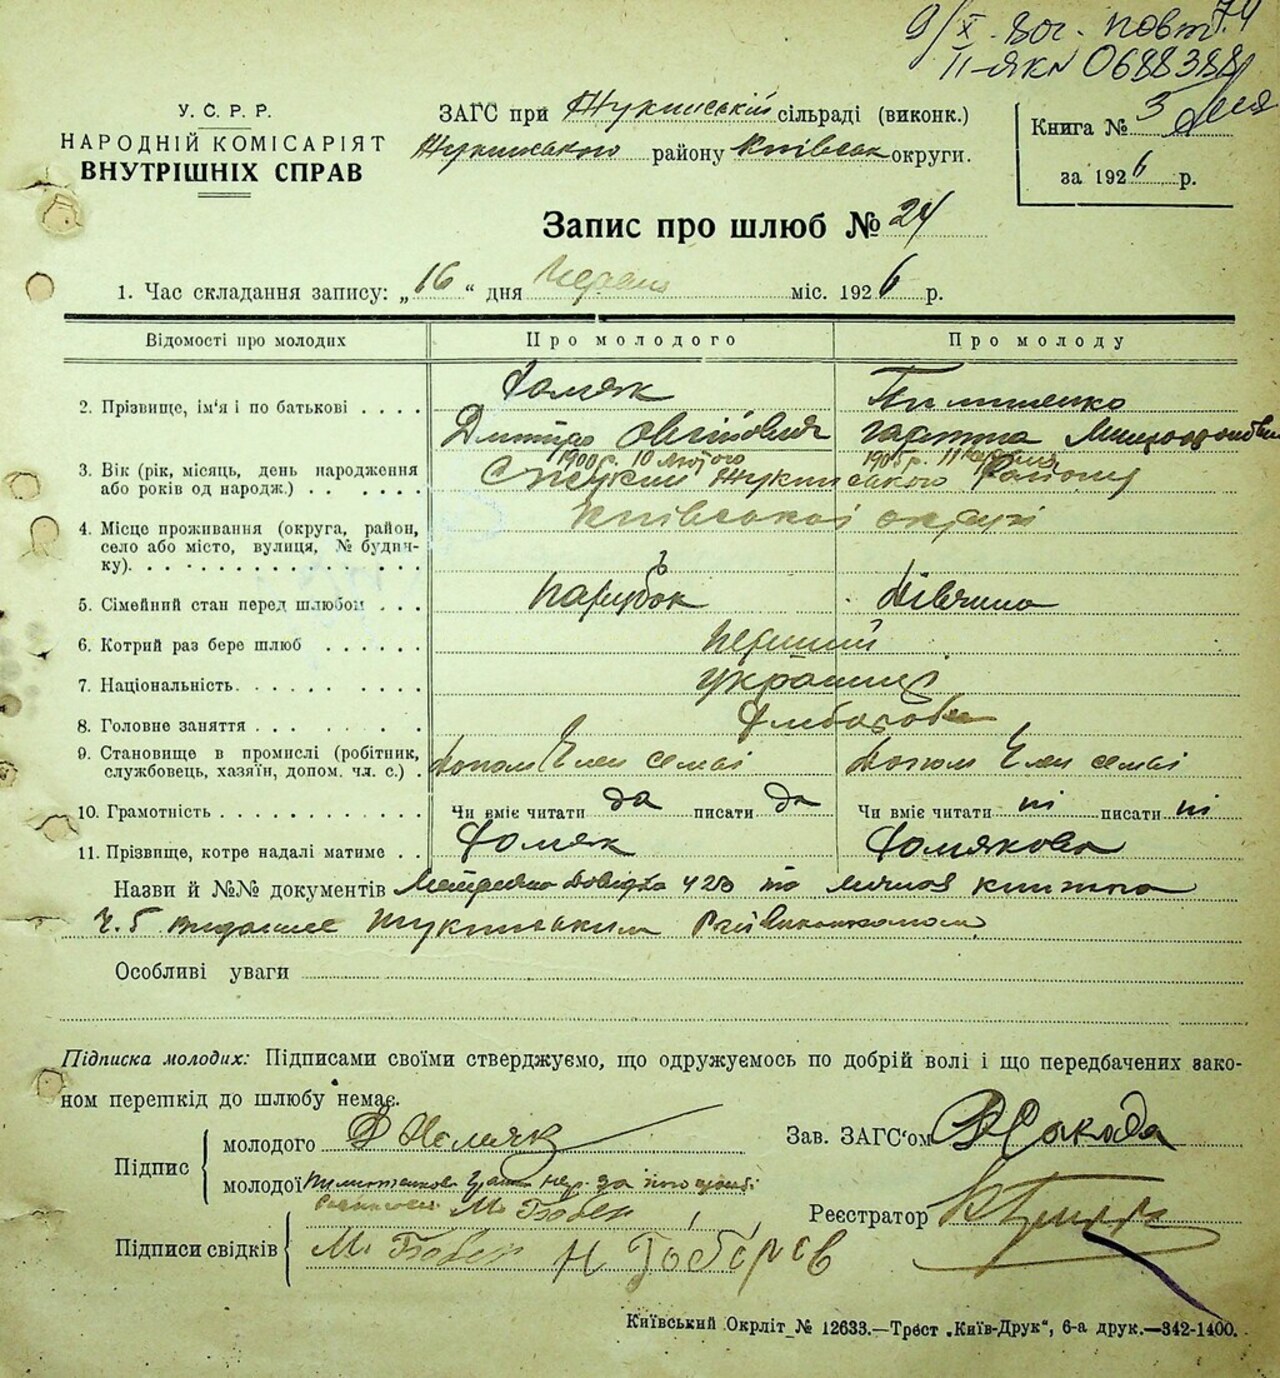 9/X. 80г. повт.
II-ЯК № 0688388
У. С. Р. Р.
НАРОДНІЙ КОМІСАРІЯТ
ВНУТРІШНІХ СПРАВ
ЗАГС при Жукинській сільраді (виконк.)
Жукинського району Київськ округи.
Книга № 3
за 1926 р.
Запис про шлюб № 24
1. Час складання запису: „16“ дня Червня міс. 1926 р.
Відомості про молодих
Про молодого
Про молоду
2. Прізвище, ім'я і по батькові . . . .
Хомяк
Пилипенко
Дмитро
3. Вік (рік, місяць, день народження або років од народж.) . . . . . .
1900 р. 10 лютого
1905 р. 11
С Жукин Жукинського Району
4. Місце проживання (округа, район, село або місто, вулиця, № будинку).
Київської округи
5. Сімейний стан перед шлюбом . . .
парубок
дівчина
6. Котрий раз бере шлюб . . . . . .
перший
7. Національність.
українці
8. Головне заняття
Хліборобы
9. Становище в промислі (робітник, службовець, хазяїн, допом. чл. с.) .
Допом Член семьі
Допом Член семьі
10. Грамотність
Чи вміє читати да писати да
Чи вміє читати ні писати ні
11. Прізвище, котре надалі матиме . .
Хомяк
Хомякова
Назви й №№ документів Метрична довідка 428 та книжка
Ч. 5 Жукинським Райвиконкомом
Особливі уваги
Підписка молодих: Підписами своїми стверджуємо, що одружуємось по добрій волі і що передбачених законом перешкід до шлюбу немає.
Підпис
молодого Д Хомяк
молодої
Підписи свідків
М.
Зав. ЗАГС'ом
Реєстратор
Київський Окрліт № 12633.—Трест „Київ-Друк“, 6-а друк.—342-1400.